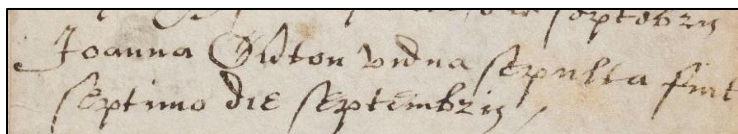 die septebris
Joanna vidua sepulta fuit
septimo die septembris